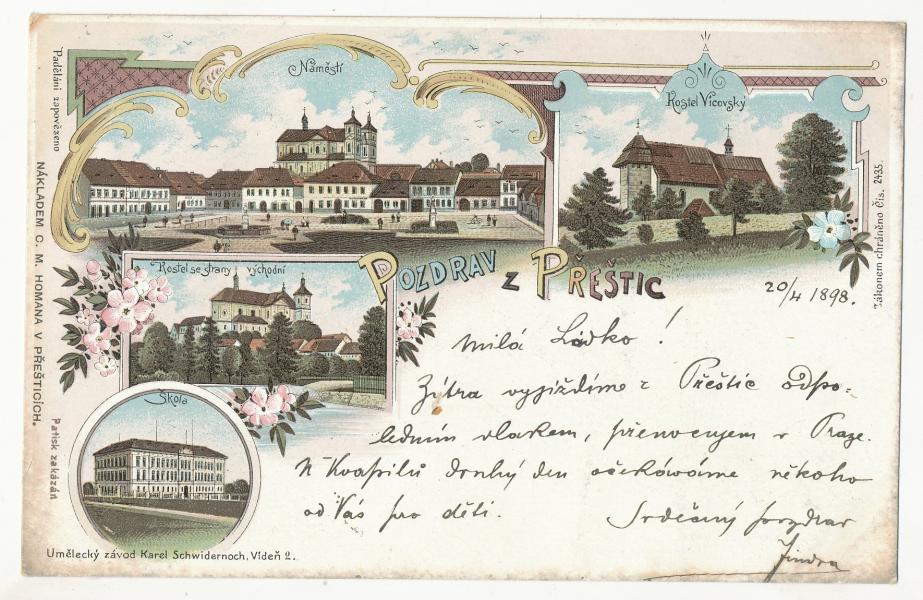 Náměstí
Kostel Vícovský
Padělání zapovězeno
NÁKLADEM C. M. HOMANA V PŘEŠTICÍCH.
Patisk zakázán
Zákonem chráněno Čís. 2435.
Kostel se strany východní
POZDRAV Z PŘEŠTIC
20/4 1898.
Milá Ládko!
Zýtra vyjíždíme z Přeštic odpo-
ledním vlakem, přenocujem v Praze.
K Kvapilů druhý den očekáváme někoho
od Vás pro děti.
Srdečný pozdrav
Jindra
Škola
Umělecký závod Karel Schwidernoch, Vídeň 2.